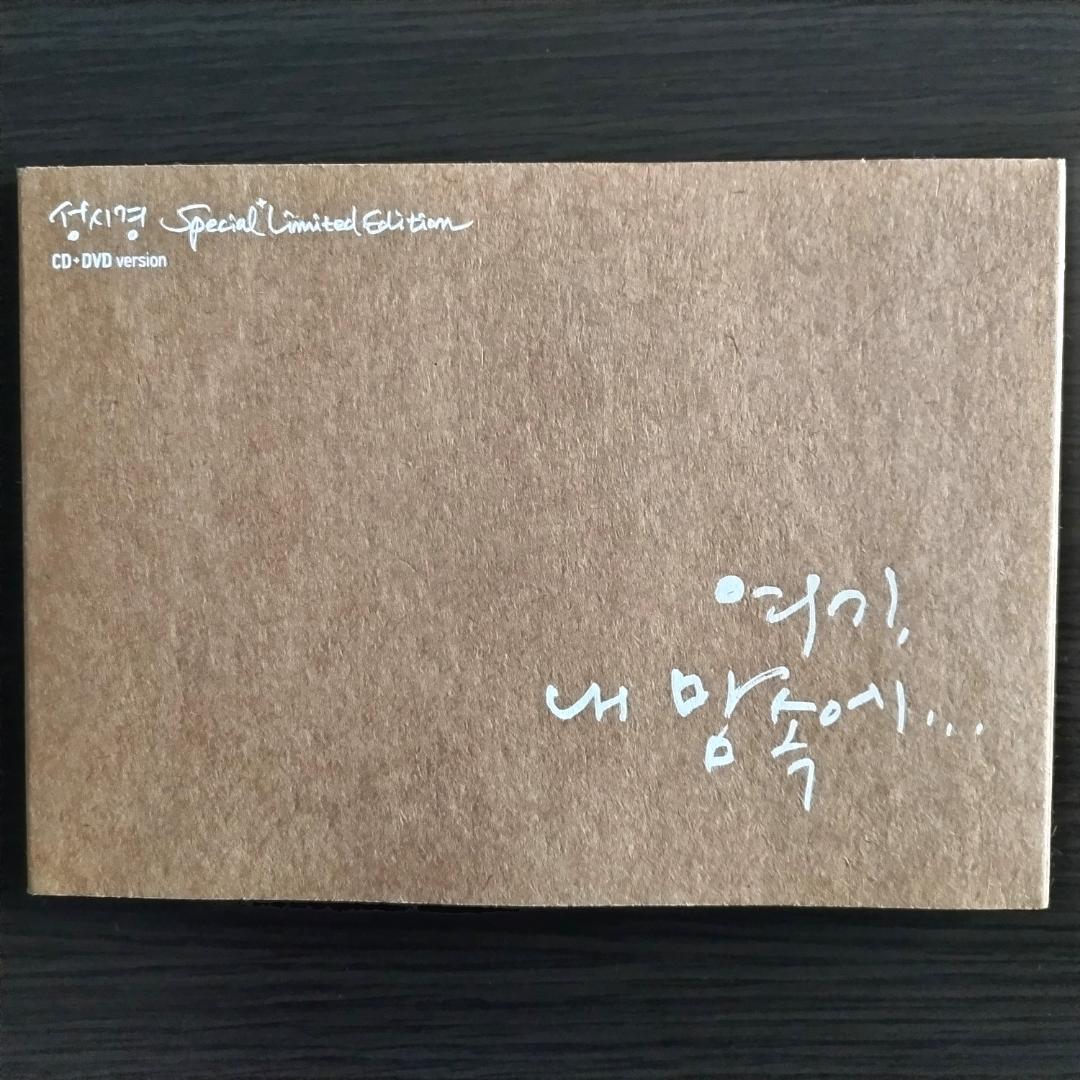 성시경 Special Limited Edition
CD+DVD version
여기,
내 맘속에...